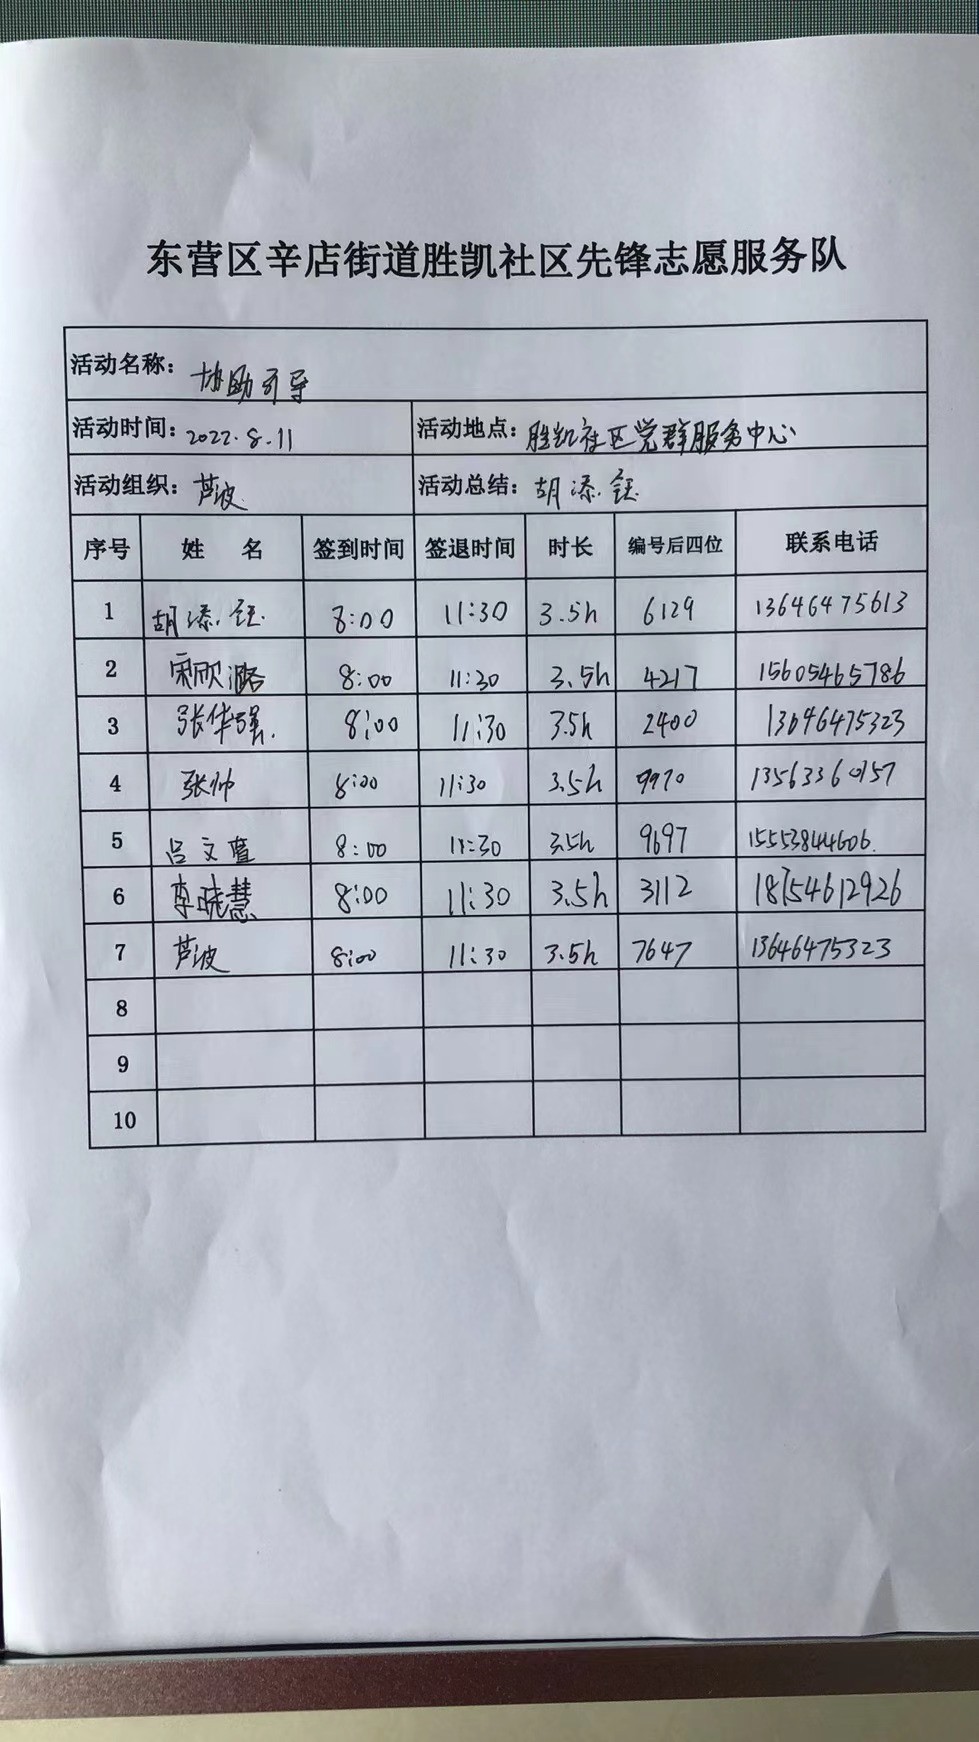 东营区辛店街道胜凯社区先锋志愿服务队
活动名称： 协助引导
活动时间：2022.8.11 活动地点：胜凯社区党群服务中心
活动组织：芦波 活动总结：胡添钰
序号 姓 名 签到时间 签退时间 时长 编号后四位 联系电话
1 胡添钰 8:00 11:30 3.5h 6129 13646475613
2 宋欣潞 8:00 11:30 3.5h 4217 15605465786
3 张华强 8:00 11:30 3.5h 2400 13646475323
4 张帅 8:00 11:30 3.5h 9970 13563360157
5 吕文 8:00 11:30 3.5h 9697 15553844606.
6 李晓慧 8:00 11:30 3.5h 3112 18754612926
7 芦波 8:00 11:30 3.5h 7647 13646475323
8
9
10